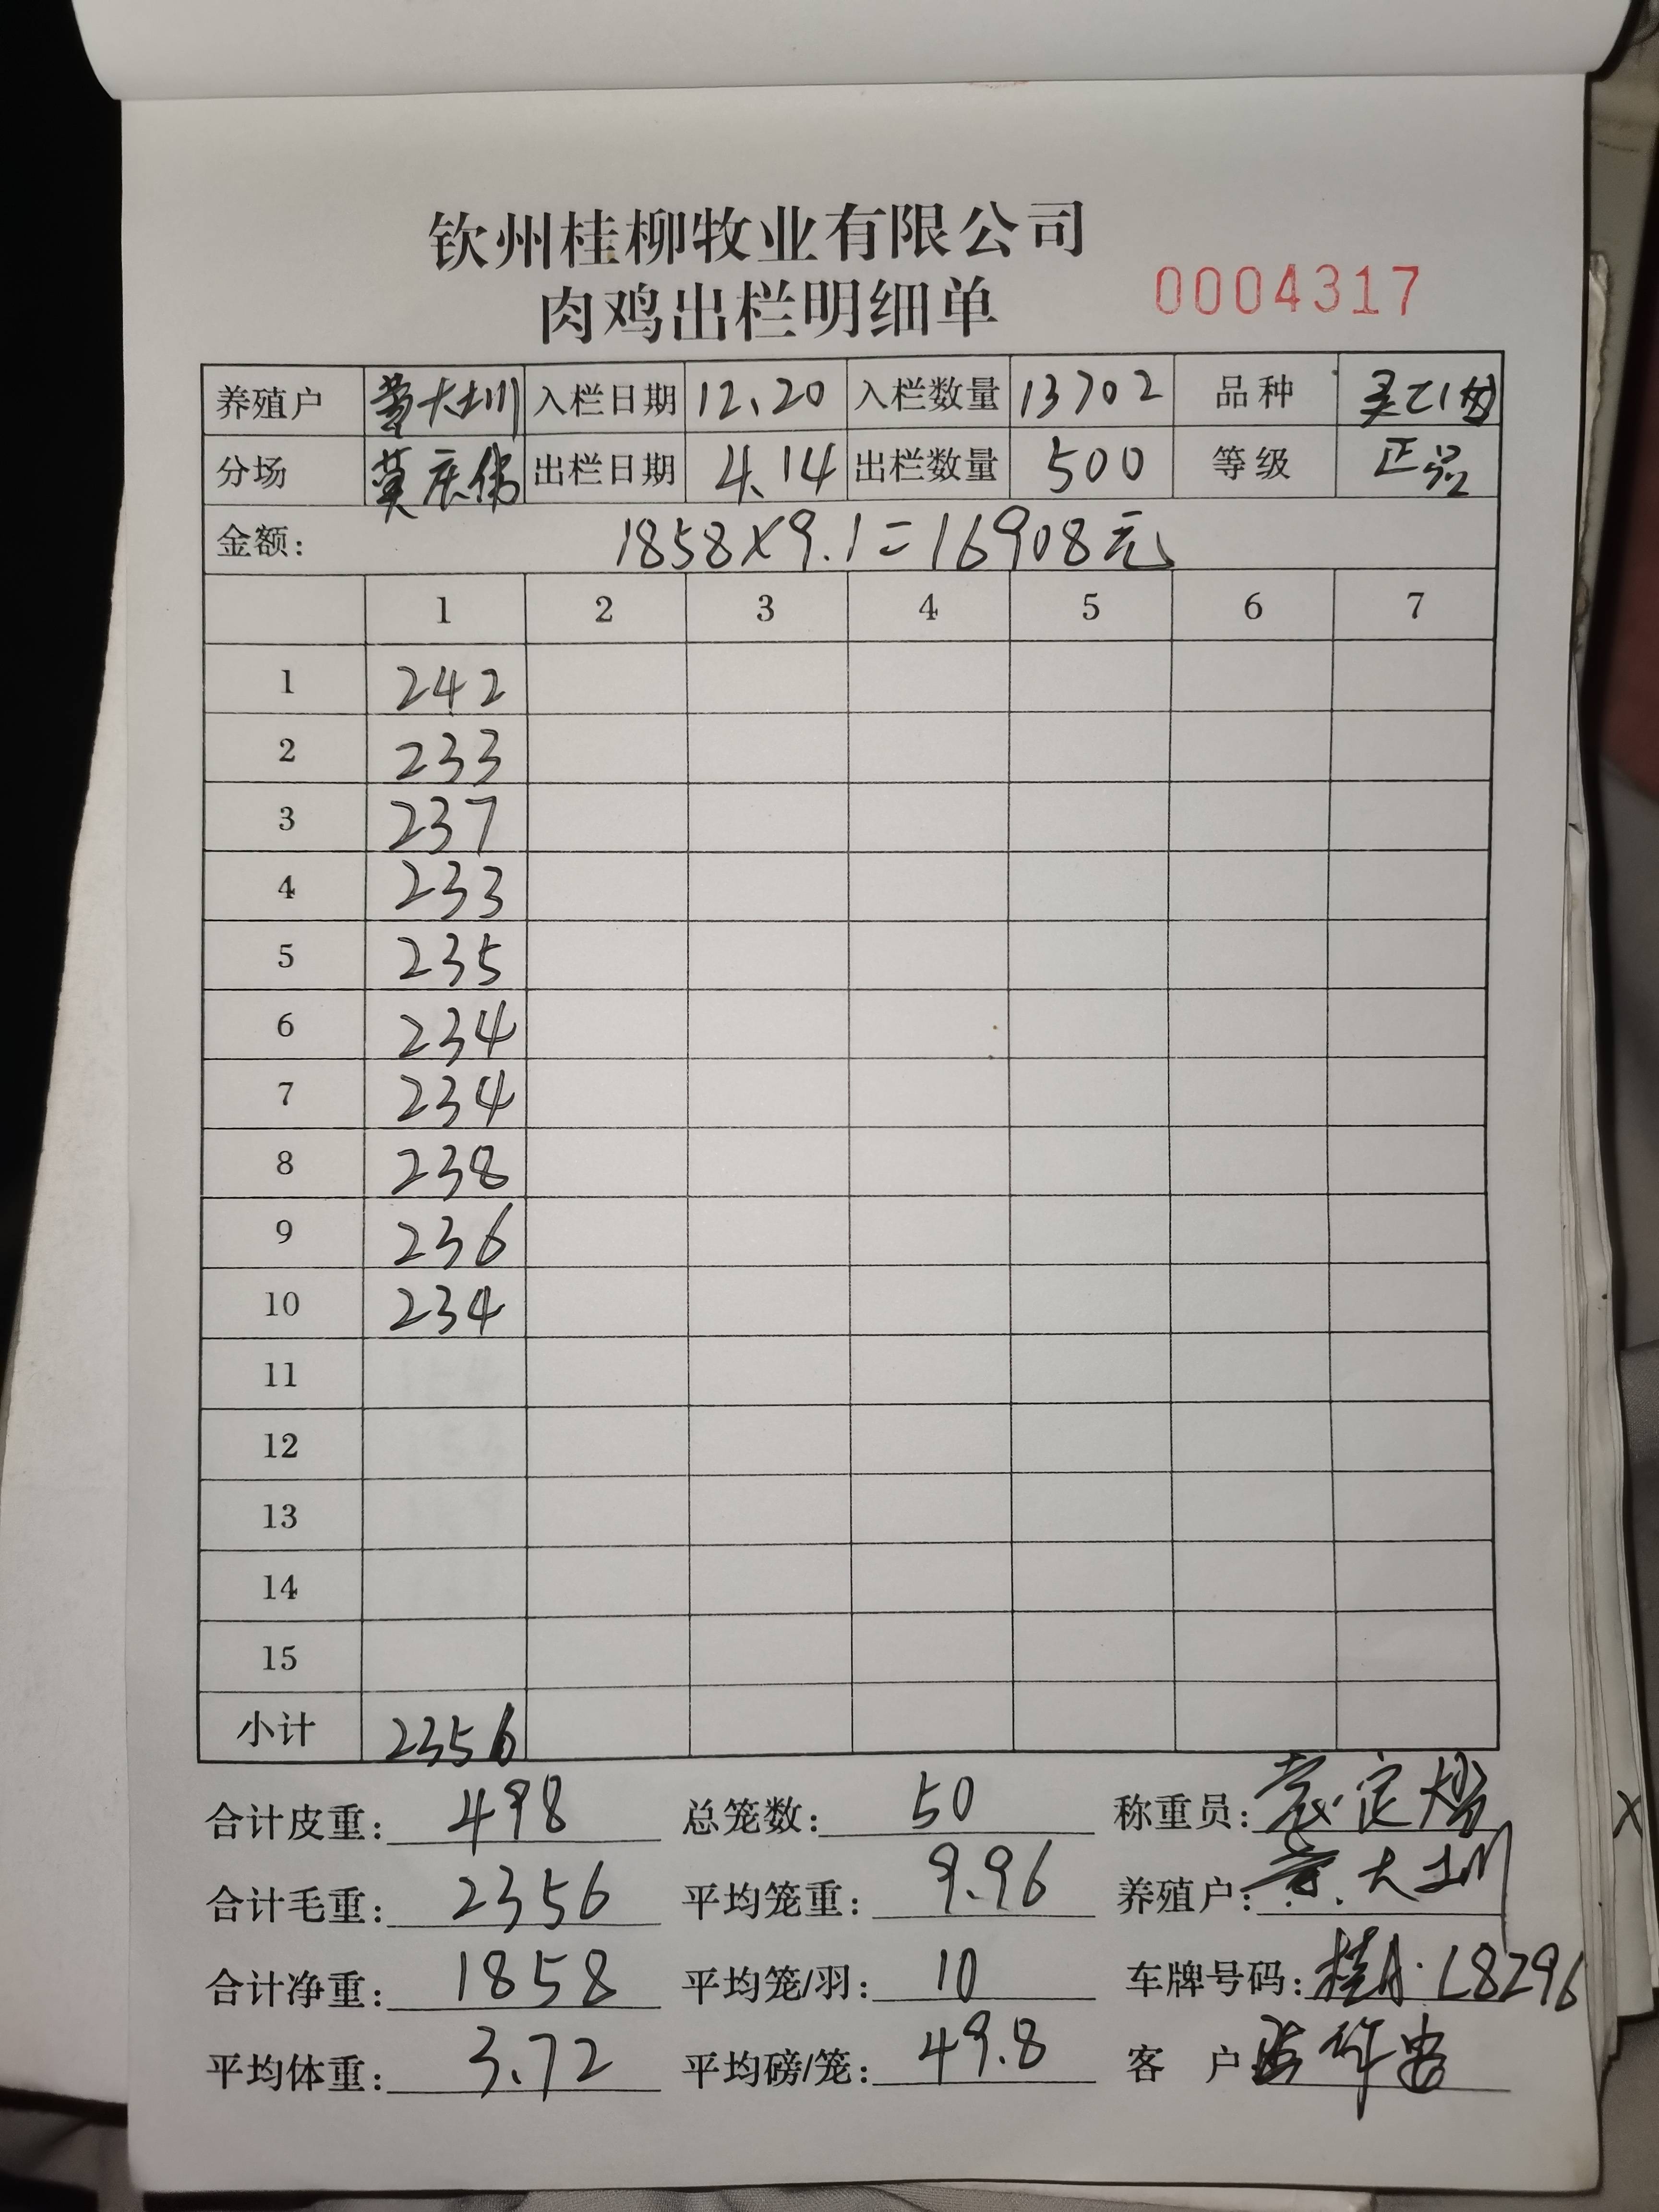 钦州桂柳牧业有限公司
肉鸡出栏明细单 0004317
养殖户 黄大圳 入栏日期 12.20 入栏数量 13702 品种
分场 莫庆伟 出栏日期 4.14 出栏数量 500 等级 正品
金额: 1858×9.1=16908元
1 2 3 4 5 6 7
1 242
2 233
3 237
4 233
5 235
6 234
7 234
8 238
9 236
10 234
11
12
13
14
15
小计 2356
合计皮重: 498 总笼数: 50 称重员:
合计毛重: 2356 平均笼重: 9.96 养殖户: 黄大圳
合计净重: 1858 平均笼/羽: 10 车牌号码: 桂A·L8296
平均体重: 3.72 平均磅/笼: 49.8 客 户
X